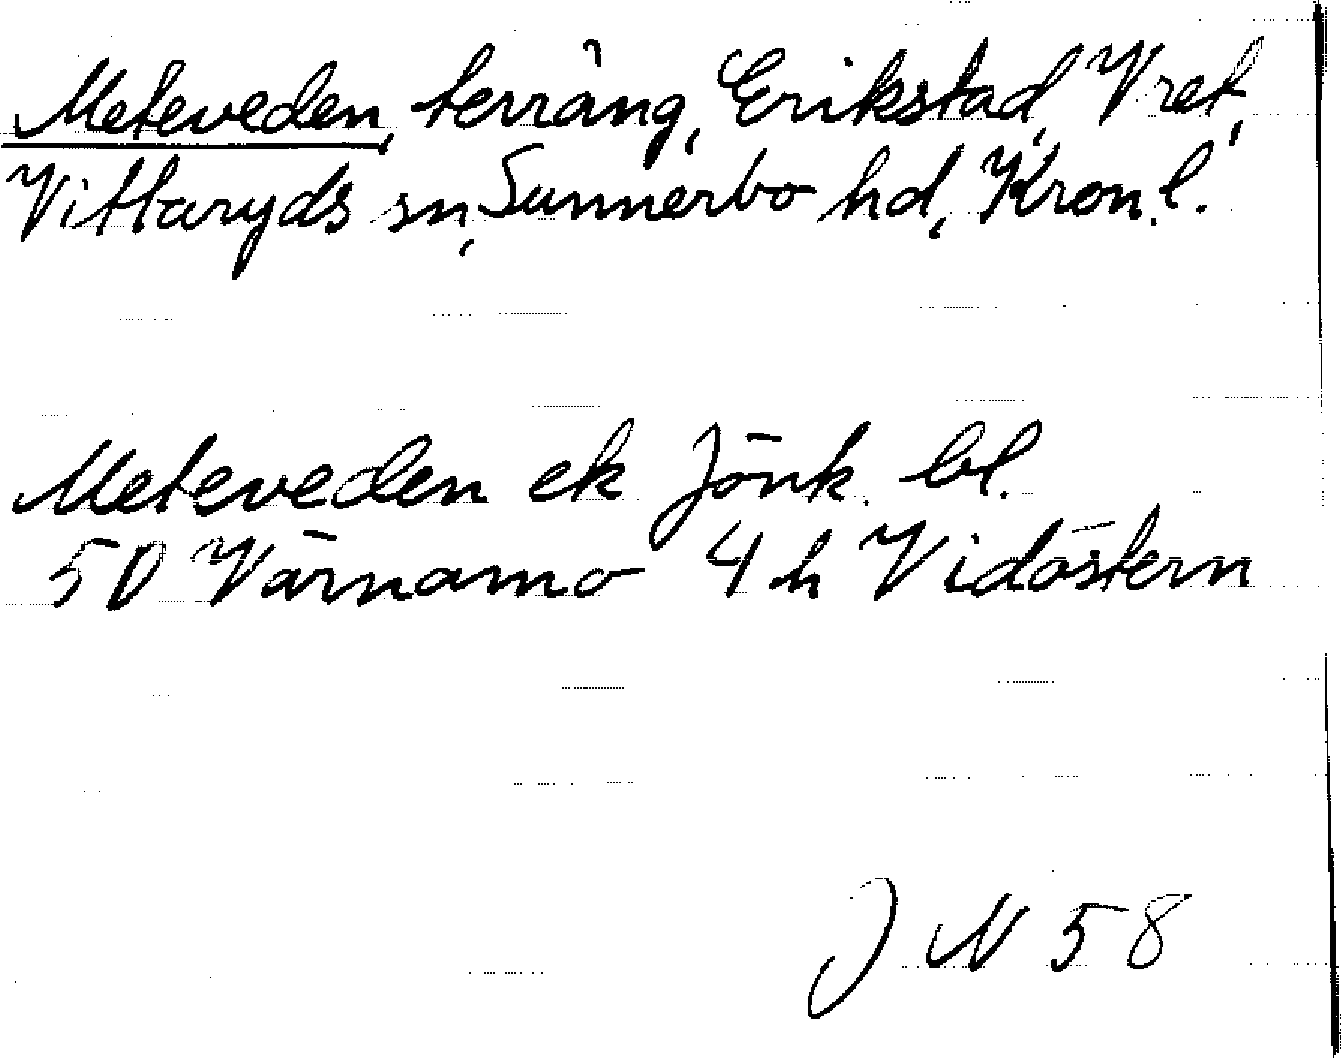 Meteveden, terräng, Erikstad, Vret,
Vittaryds sn, Sunnerbo hd, Kron.l.
Meteveden ek Jönk. bl.
5D Värnamo 4 h Vidöstern
J N 58